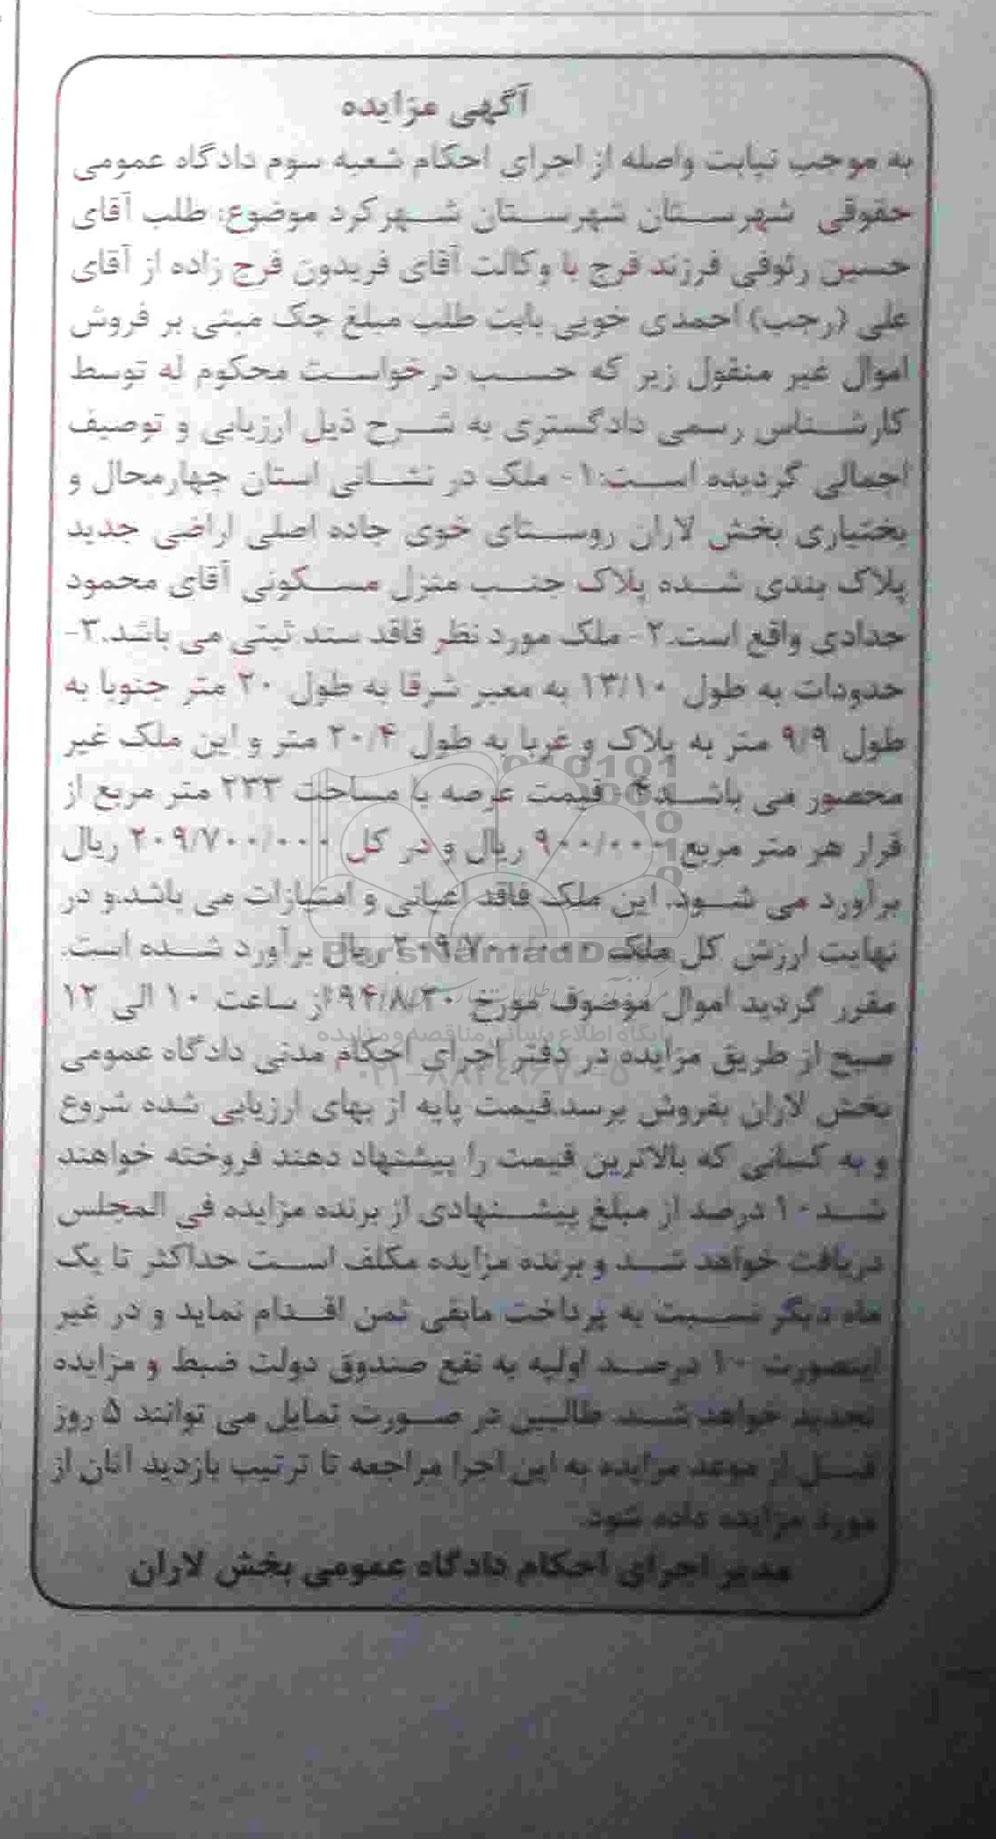 آگهی مزایده
به موجب نیابت واصله از اجرای احکام شعبه سوم دادگاه عمومی
حقوقی شهرستان شهرستان شهرکرد موضوع: طلب آقای
حسین رئوفی فرزند فرج با وکالت آقای فریدون فرج زاده از آقای
علی (رجب) احمدی خویی بابت طلب مبلغ چک مبنی بر فروش
اموال غیر منقول زیر که حسب درخواست محکوم له توسط
کارشناس رسمی دادگستری به شرح ذیل ارزیابی و توصیف
اجمالی گردیده است:۱- ملک در نشانی استان چهارمحال و
بختیاری بخش لاران روستای خوی جاده اصلی اراضی جدید
پلاک بندی شده پلاک جنب منزل مسکونی آقای محمود
حدادی واقع است.۲- ملک مورد نظر فاقد سند ثبتی می باشد.۳-
حدودات به طول ۱۳/۱۰ به معبر شرقا به طول ۲۰ متر جنوبا به
طول ۹/۹ متر به پلاک و غربا به طول ۲۰/۴ متر و این ملک غیر
محصور می باشد۴- قیمت عرصه با مساحت ۲۳۳ متر مربع از
قرار هر متر مربع ۹۰۰/۰۰۰ ریال و در کل ۲۰۹/۷۰۰/۰۰۰ ریال
برآورد می شود. این ملک فاقد اعیانی و امتیازات می باشد.و در
نهایت ارزش کل ملک ۲۰۹/۷۰۰/۰۰۰ ریال برآورد شده است.
مقرر گردید اموال موصوف مورخ ۹۴/۸/۳۰ از ساعت ۱۰ الی ۱۲
صبح از طریق مزایده در دفتر اجرای احکام مدنی دادگاه عمومی
بخش لاران بفروش برسد.قیمت پایه از بهای ارزیابی شده شروع
و به کسانی که بالاترین قیمت را پیشنهاد دهند فروخته خواهند
شد ۱۰ درصد از مبلغ پیشنهادی از برنده مزایده فی المجلس
دریافت خواهد شد و برنده مزایده مکلف است حداکثر تا یک
ماه دیگر نسبت به پرداخت مابقی ثمن اقدام نماید و در غیر
اینصورت ۱۰ درصد اولیه به نفع صندوق دولت ضبط و مزایده
تجدید خواهد شد. طالبین در صورت تمایل می توانند ۵ روز
قبل از موعد مزایده به این اجرا مراجعه تا ترتیب بازدید آنان از
مورد مزایده داده شود.
مدیر اجرای احکام دادگاه عمومی بخش لاران
ParsNamadData
پایگاه اطلاع رسانی مناقصه و مزایده